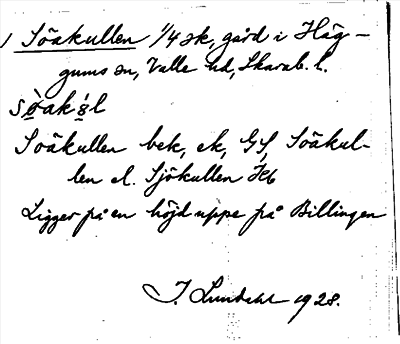 1 Söäkullen 1/4 sk, gård i Häg-
gums sn, Valle hd, Skarab. l.
sö̀ak'ɵl
Soäkullen bek, ek, GS, Soäkul-
len el. Sjökullen Hb
Ligger på en höjd uppe på Billingen
J. Lundahl 1928.